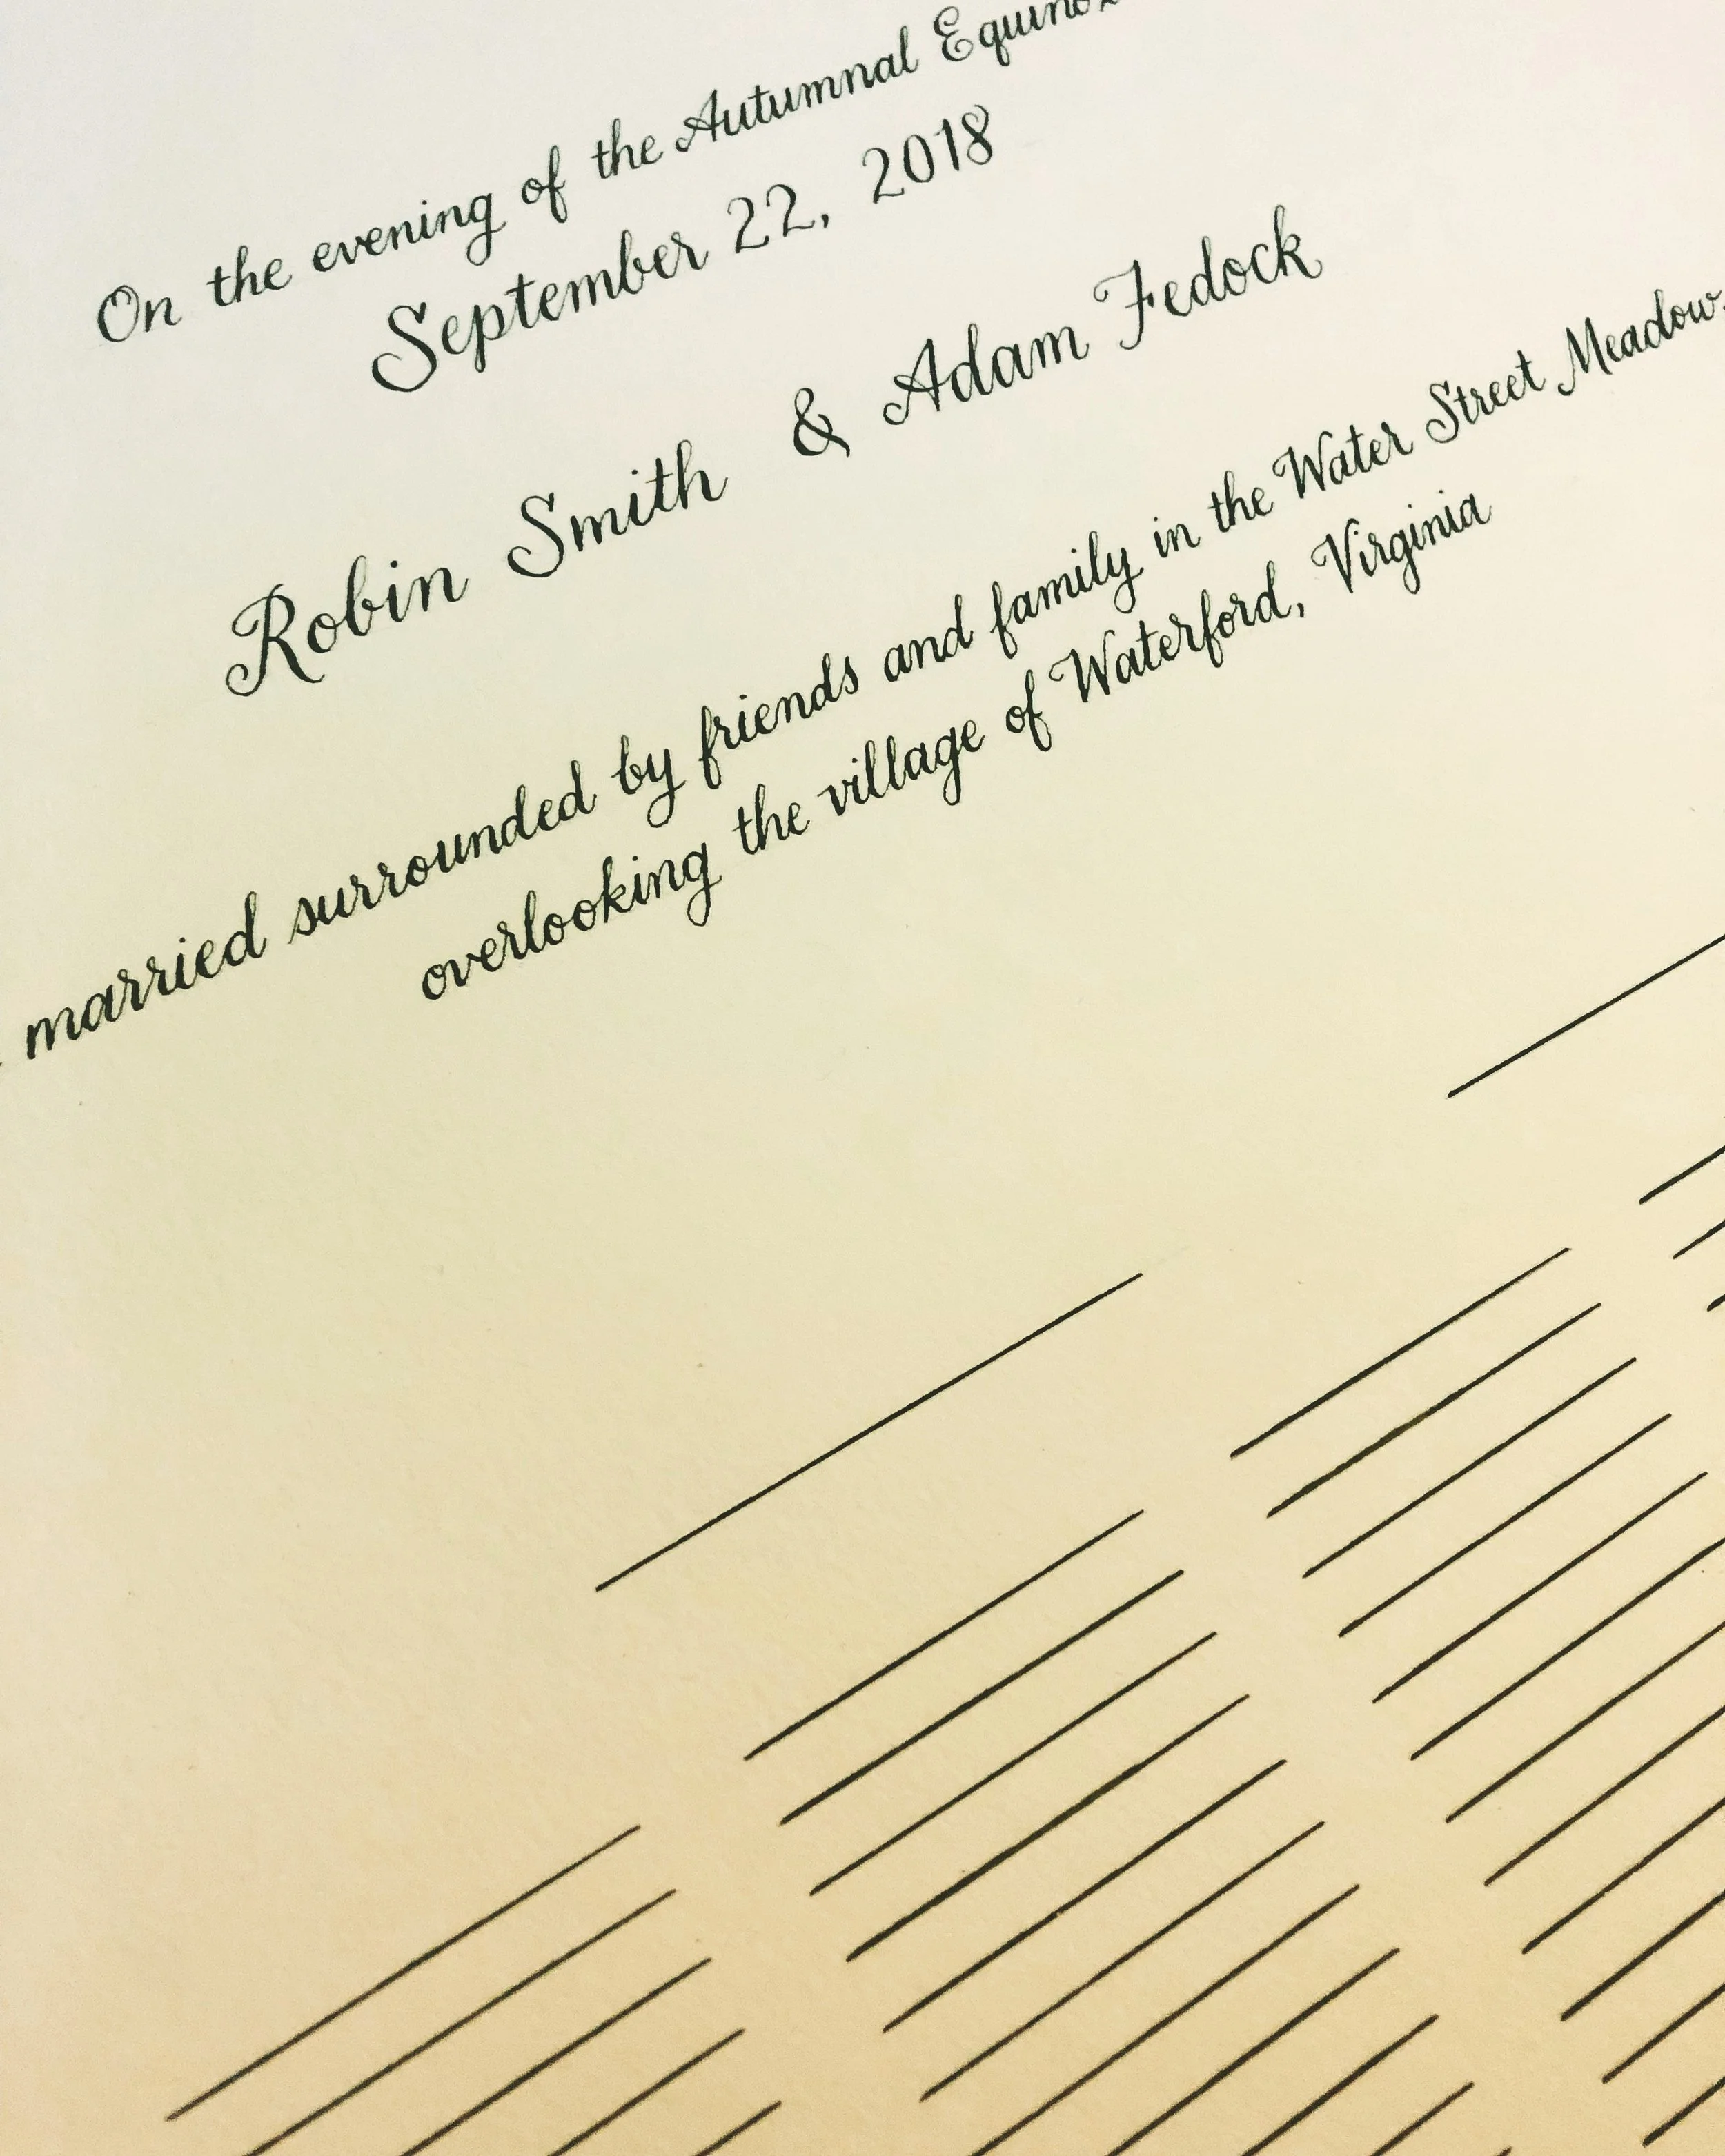 On the evening of the Autumnal Equinox
September 22, 2018
Robin Smith & Adam Fedock
married surrounded by friends and family in the Water Street Meadow,
overlooking the village of Waterford, Virginia